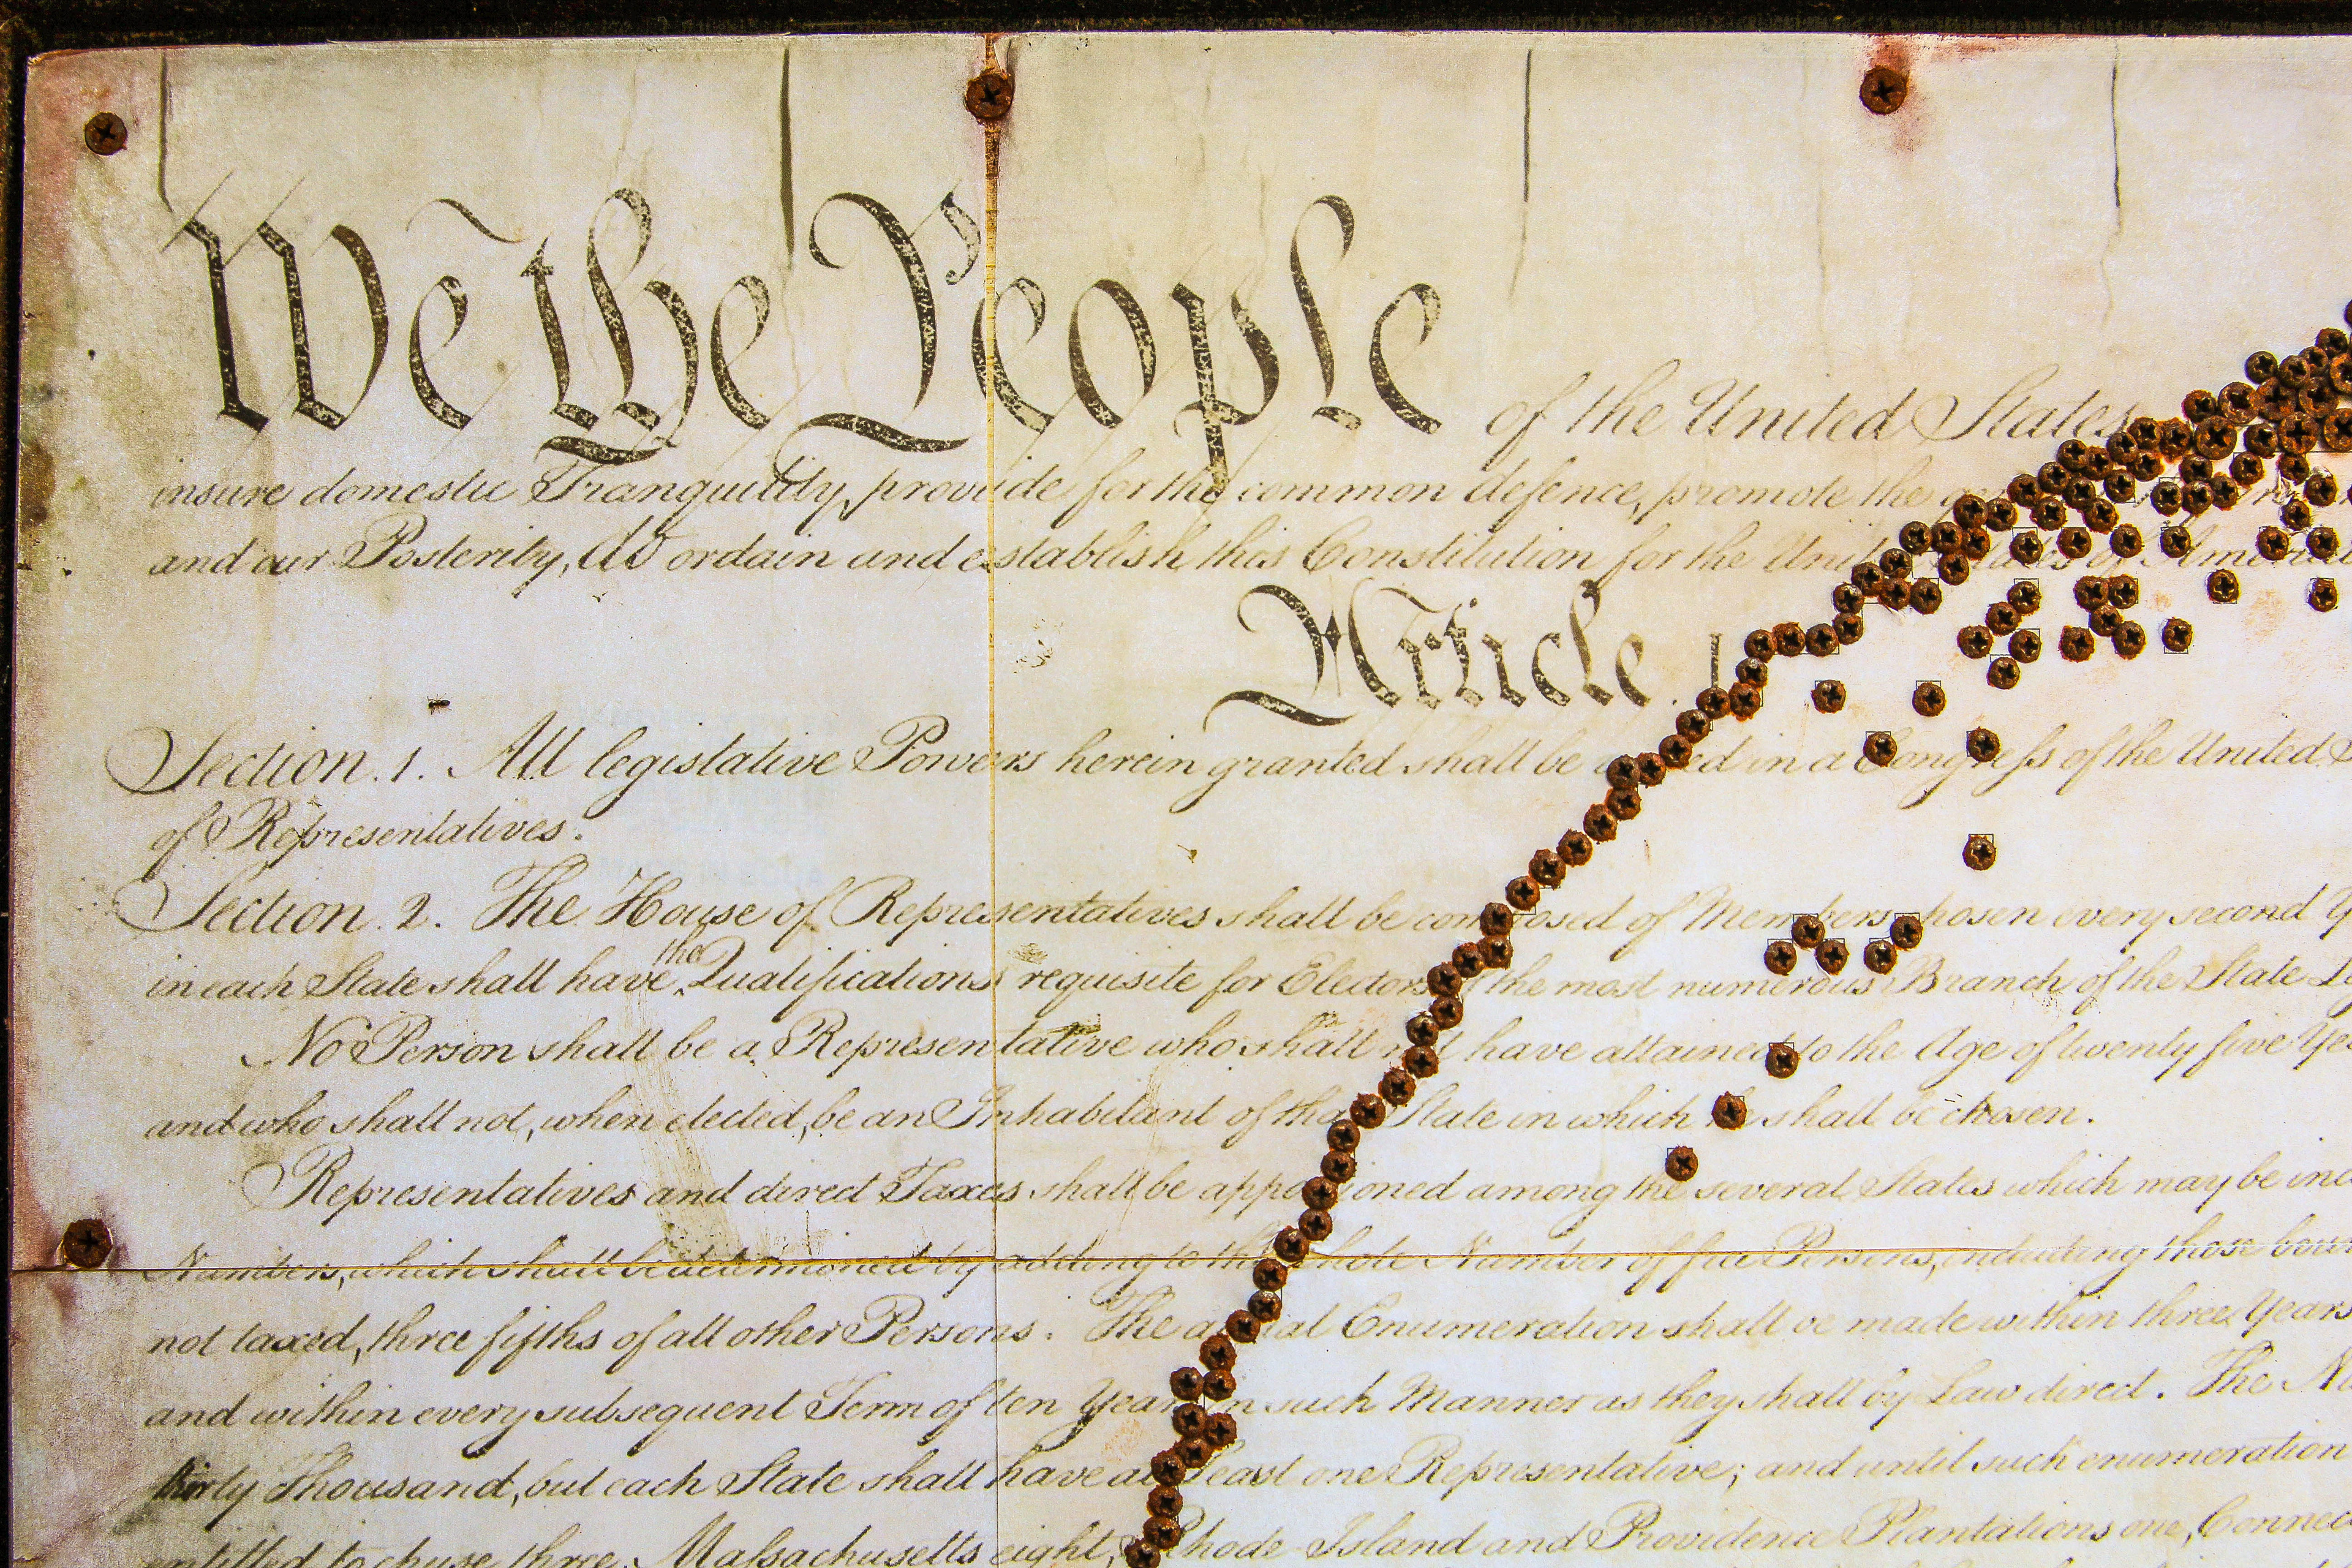 We the People of the United States
insure domestic Tranquility, provide for the common defence, promote the
and our Posterity, do ordain and establish this Constitution for the United States of America
Article. I
Section. 1. All legislative Powers herein granted shall be in a Congress of the United
of Representatives.
Section. 2. The House of Representatives shall be composed of Members chosen every second
in each State shall have the Qualifications requisite for Electors the most numerous Branch of the State
No Person shall be a Representative who shall not have attained to the Age of twenty five
and who shall not, when elected, be an Inhabitant of that State in which he shall be chosen.
Representatives and direct Taxes shall be apportioned among the several States which may be
Numbers, which shall be determined by adding to the whole Number of free Persons, including those
not taxed, three fifths of all other Persons. The actual Enumeration shall be made within three Years
and within every subsequent Term of ten Years, in such Manner as they shall by Law direct. The
thirty Thousand, but each State shall have at Least one Representative; and until such enumeration
entitled to chuse three, Massachusetts eight, Rhode-Island and Providence Plantations one,